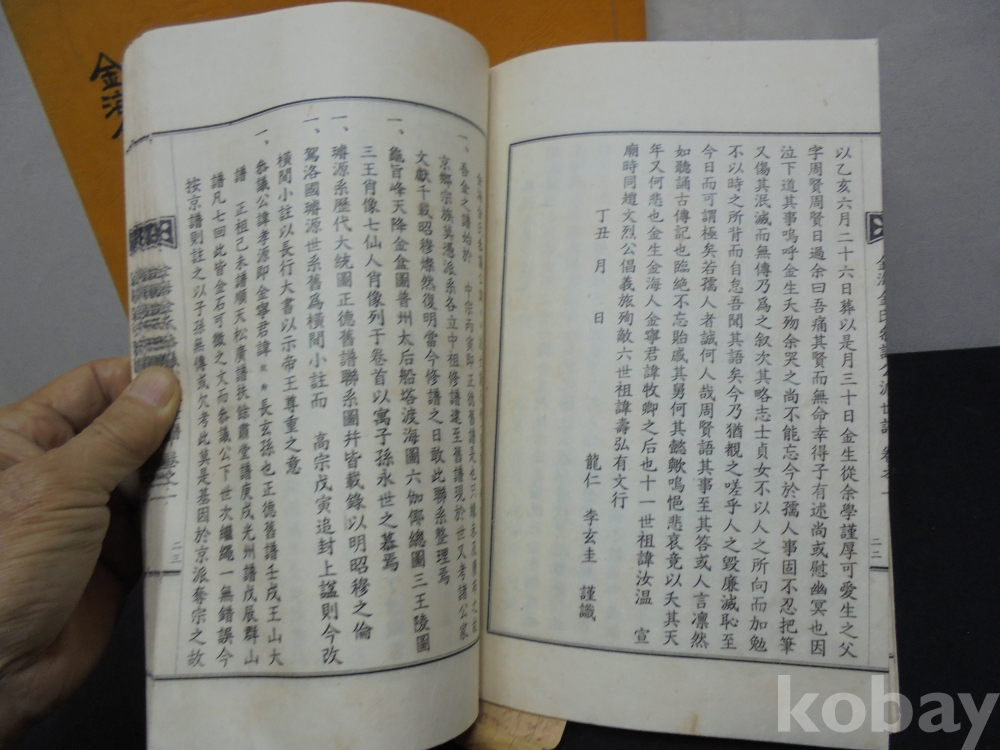 以乙亥六月二十六日葬以是月三十日金生從余學謹厚可愛生之父
字周賢周賢日過余曰吾痛其賢而無命幸得子有述尚或慰幽冥也因
泣下道其事嗚呼金生夭歿余哭之尚不能忘今於孺人事固不忍把筆
又傷其泯滅而無傳乃爲之叙次其略志士貞女不以人之所向而加勉
不以時之所背而自怠吾聞其語矣今乃猶覩之嗟乎人之毁廉滅恥至
今日而可謂極矣若孺人者誠何人哉周賢語其事至其答或人言凛然
如聽誦古傳記也臨絶不忘貽戚其舅何其懿歟嗚悒悲哀竟以夭其天
年又何悲也金生金海人金寧君諱牧卿之后也十一世祖諱汝温 宣
廟時同趙文烈公倡義旅殉敵六世祖諱壽弘有文行
丁丑 月 日
龍仁 李玄圭 謹識
金海金氏 派世譜 卷之一
二二
一、吾金之譜始於 中宗丙寅即正德舊譜是也
京鄕宗族莫憑派系各立中祖修譜逮至舊譜現於世又考諸公家
文獻千載昭穆燦然復明當今修譜之日敢此聯系整理焉
一、龜旨峰天降金盒圖普州太后船塔渡海圖六伽倻總圖三王陵圖
三王肖像七仙人肖像列于卷首以寓子孫永世之慕焉
一、璿源系歷代大統圖正德舊譜聯系圖幷皆載錄以明昭穆之倫
一、駕洛國璿源世系舊爲橫間小註而 高宗戊寅追封上謚則今改
橫間小註以長行大書以示帝王尊重之意
一、叅議公諱孝源即金寧君諱 長玄孫也正德舊譜壬戌王山大
譜 正祖己未譜順天松廣譜扶餘霸堂譜庚戌光州譜戊辰群山
譜凡七回此皆金石可徵之文而叅議公下世次繼繩一無錯誤今
按京譜則註之以子孫無傳或欠考此莫是基因於京派奪宗之故
譜 卷之一
二三
金海
kobay